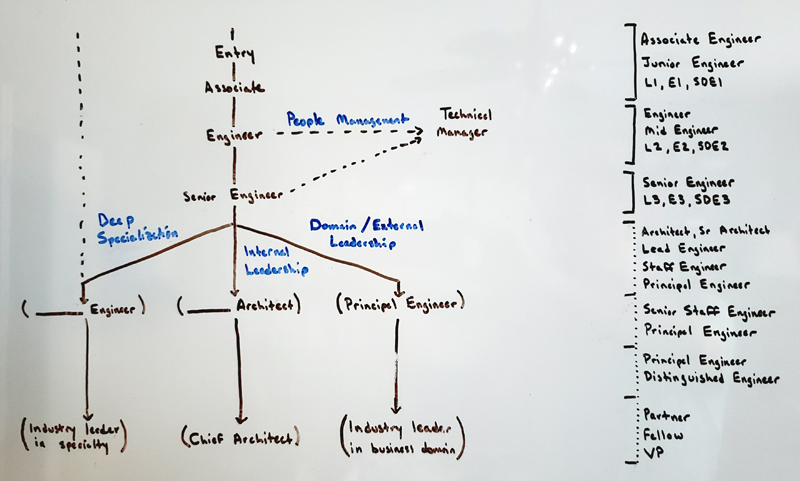 Entry
Associate
Engineer
People Management
Technical
Manager
Senior Engineer
Deep
Specialization
Internal
Leadership
Domain / External
Leadership
( ____ Engineer)
( ____ Architect)
(Principal Engineer)
(Industry leader
in specialty)
(Chief Architect)
(Industry leader
in business domain)
Associate Engineer
Junior Engineer
L1, E1, SDE1
Engineer
Mid Engineer
L2, E2, SDE2
Senior Engineer
L3, E3, SDE3
Architect, Sr Architect
Lead Engineer
Staff Engineer
Principal Engineer
Senior Staff Engineer
Principal Engineer
Principal Engineer
Distinguished Engineer
Partner
Fellow
VP